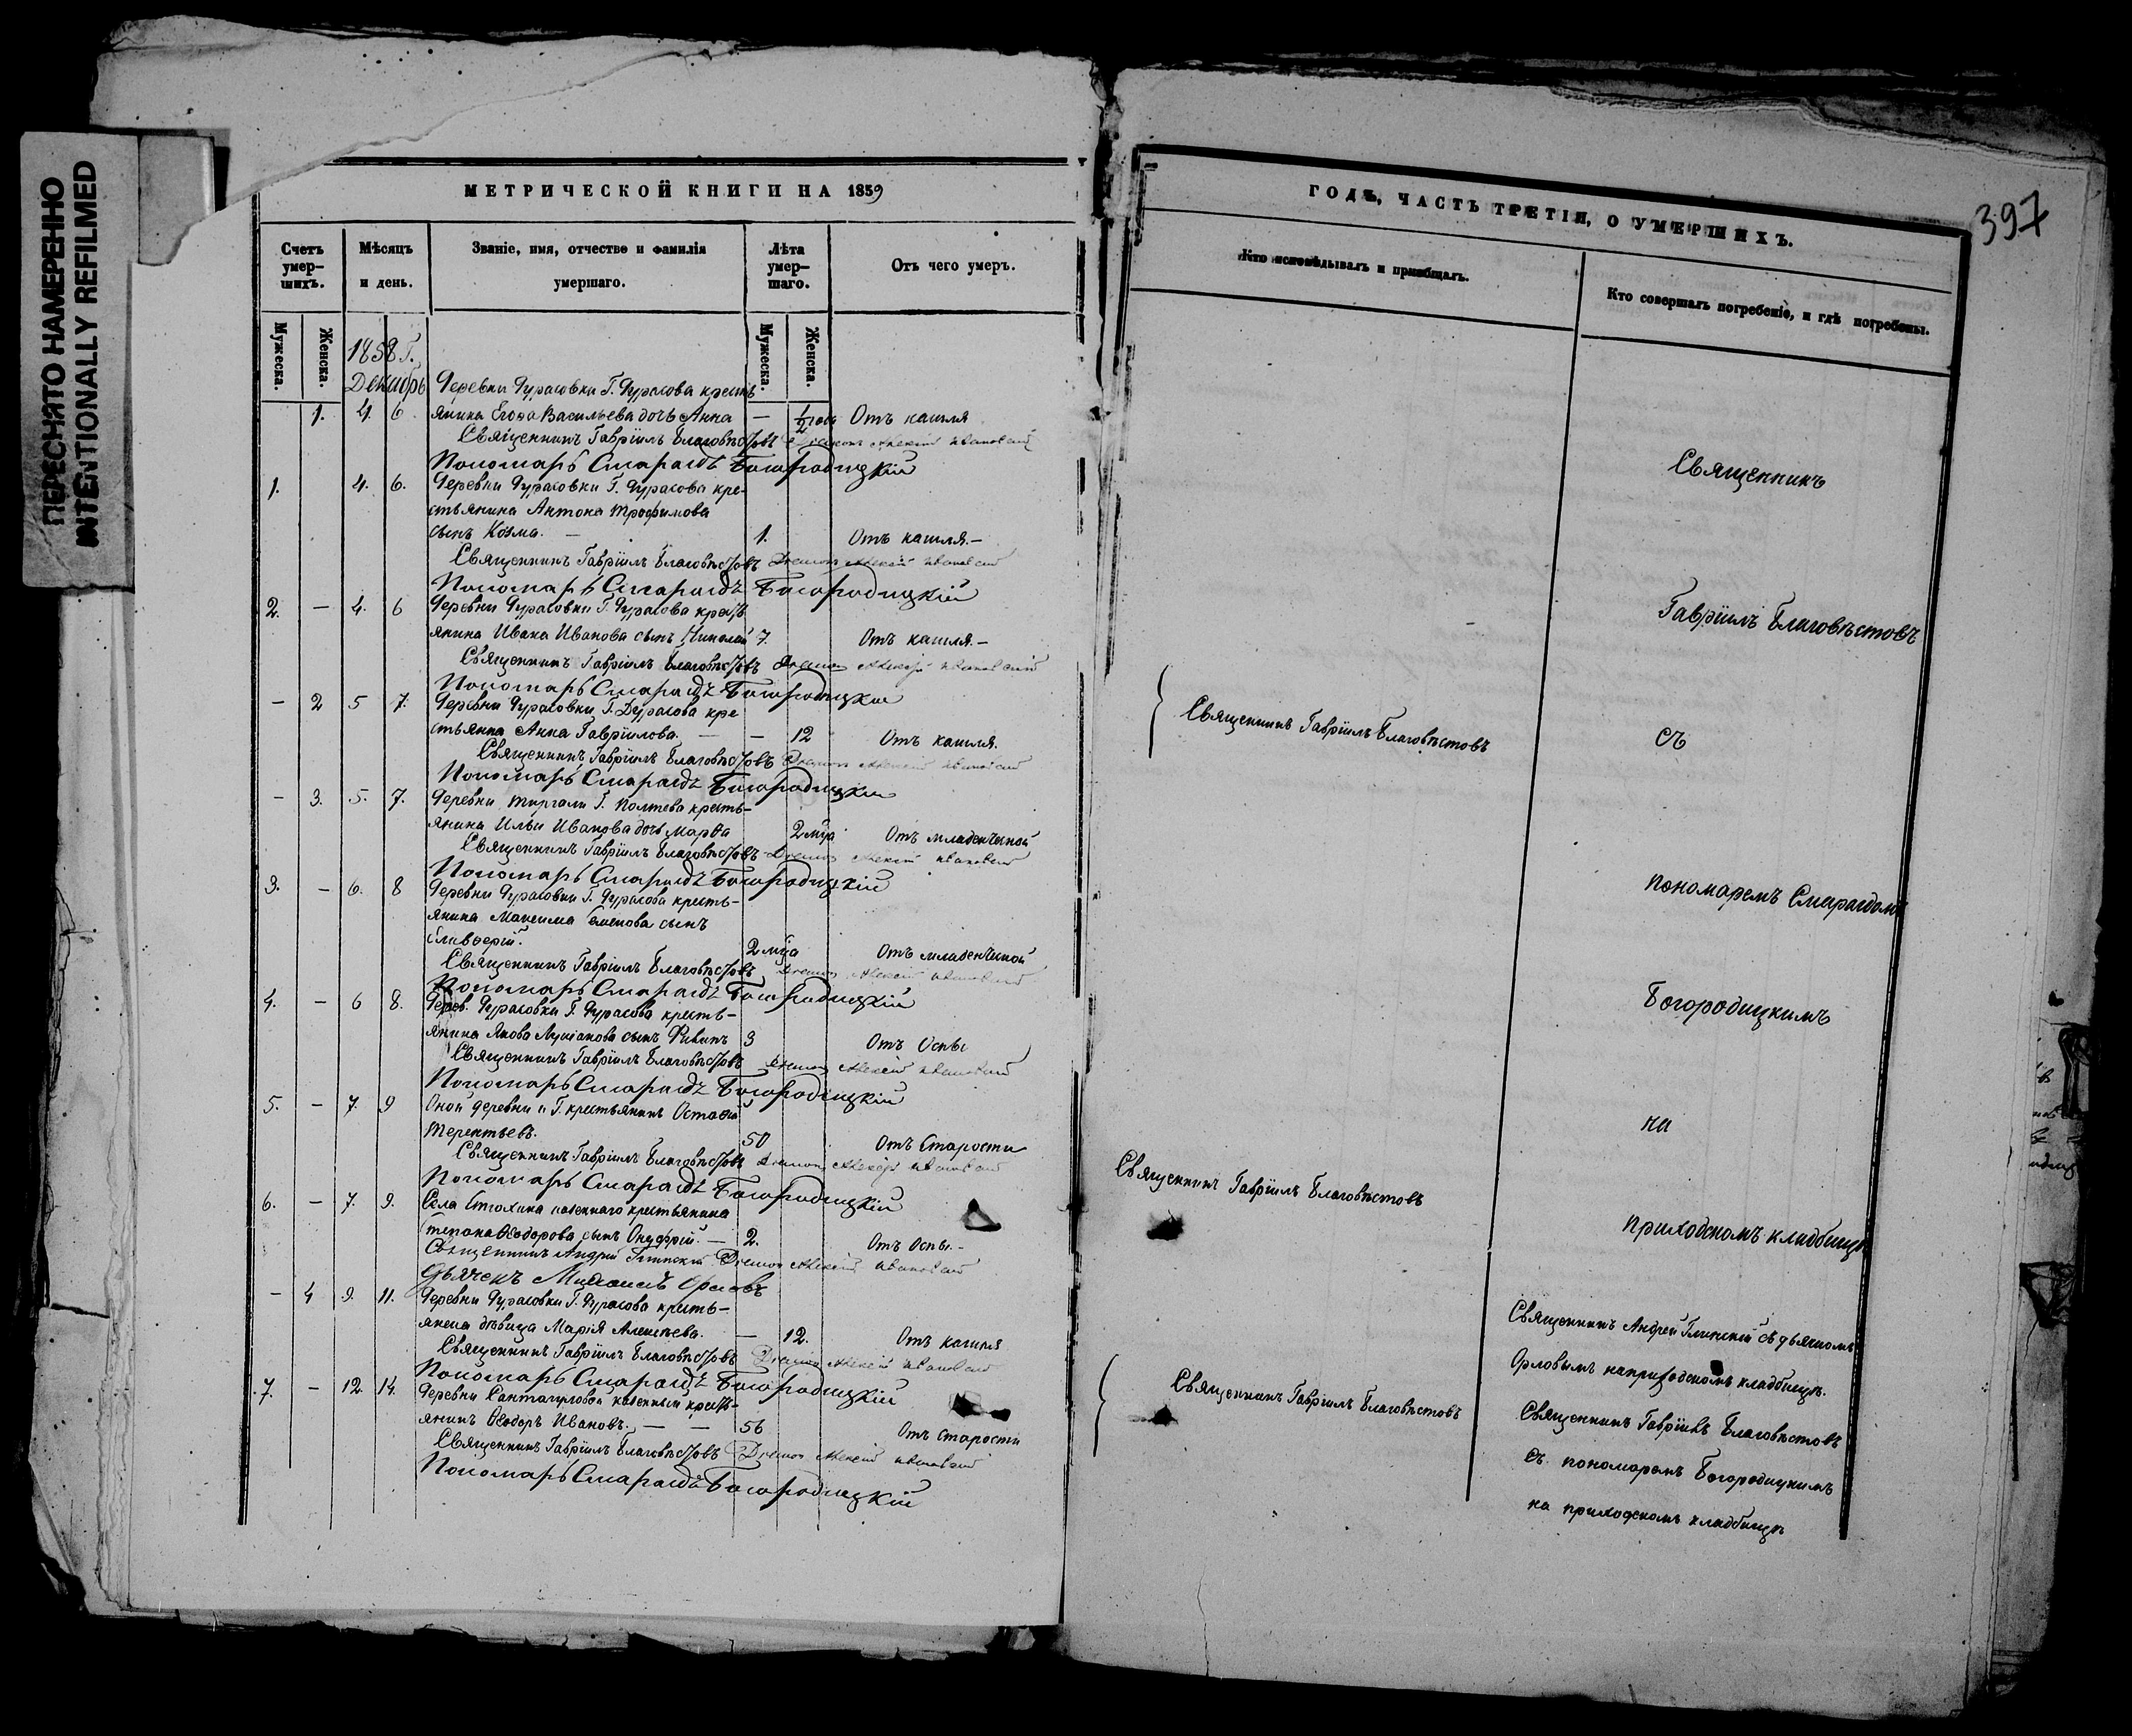 ПЕРЕСНЯТО НАМЕРЕННО
INTENTIONALLY REFILMED
МЕТРИЧЕСКОЙ КНИГИ НА 1859
Счетъ умер-шихъ.
Мѣсяцъ и день.
Званіе, имя, отчество и фамилія умершаго.
Лѣта умер-шаго.
Отъ чего умеръ.
Мужеска. Женска. Мужеска. Женска.
1858 Г.
Декабрь Деревни Дурасовки Г. Дурасова кресть
1. 4 6 янина Егора Васильева дочь Анна — 1/2 Отъ кашля
Священникъ Гавріилъ Благовѣстовъ Алексій
Пономарь Смарагдъ Богородицкій
1. 4. 6. Деревни Дурасовки Г. Дурасова кре-
стьянина Антона Трофимова
сынъ Козма. — 1. Отъ кашля.—
Священникъ Гавріилъ Благовѣстовъ Алексій
Пономарь Смарагдъ Богородицкій
2. — 4. 6 Деревни Дурасовки Г. Дурасова кресть
янина Ивана Иванова сынъ Николай 7. Отъ кашля.—
Священникъ Гавріилъ Благовѣстовъ
Пономарь Смарагдъ Богородицкій
— 2 5 7. Деревни Дурасовки Г. Дурасова кре
стьянка Анна Гавріилова. — — 12 Отъ кашля.
Священникъ Гавріилъ Благовѣстовъ Алексій
Пономарь Смарагдъ Богородицкій
— 3. 5. 7. Деревни Г. кресть-
янина Ильи Иванова дочь Марѳа 2 мца Отъ младенческой
Священникъ Гавріилъ Благовѣстовъ Алексій
Пономарь Смарагдъ Богородицкій
3. — 6. 8 Деревни Дурасовки Г. Дурасова кресть-
янина Максима Семенова сынъ
2 мца Отъ младенческой
Священникъ Гавріилъ Благовѣстовъ Алексій
Пономарь Смарагдъ Богородицкій
4. — 6 8. Дерев. Дурасовки Г. Дурасова кресть-
янина Якова сынъ 3 Отъ Оспы
Священникъ Гавріилъ Благовѣстовъ Алексій
Пономарь Смарагдъ Богородицкій
5. — 7. 9 Оной деревни и Г. крестьянинъ
Терентьевъ. 50 Отъ Старости
Священникъ Гавріилъ Благовѣстовъ
Пономарь Смарагдъ Богородицкій
6. — 7. 9. Села казеннаго крестьянина
Степана Ѳеодорова сынъ Онуфрій. — 2. Отъ Оспы.—
Священникъ Андрей Глинскій Алексій
Дьячекъ Михаилъ Орловъ
— 4 9. 11. Деревни Дурасовки Г. Дурасова кресть-
янска дѣвица Марія Алексѣева. — 12. Отъ кашля
Священникъ Гавріилъ Благовѣстовъ Алексій
Пономарь Смарагдъ Богородицкій
7. — 12 14. Деревни казенный кресть-
янинъ Ѳеодоръ Ивановъ. — — 56 Отъ старости
Священникъ Гавріилъ Благовѣстовъ Алексій
Пономарь Смарагдъ Богородицкій
ГОДЪ, ЧАСТЬ ТРЕТІЯ, О УМЕРШИХЪ.
397
Кто исповѣдывалъ и пріобщалъ.
Кто совершалъ погребеніе, и гдѣ погребены.
Священникъ
Гавріилъ Благовѣстовъ
Священникъ Гавріилъ Благовѣстовъ
съ
пономаремъ Смарагдомъ
Богородицкимъ
на
Священникъ Гавріилъ Благовѣстовъ
приходскомъ кладбищѣ
Священникъ Андрей Глинскій съ дьячкомъ
Орловымъ на приходскомъ кладбищѣ.
Священникъ Гавріилъ Благовѣстовъ
Священникъ Гавріилъ Благовѣстовъ
съ пономаремъ Богородицкимъ
на приходскомъ кладбищѣ